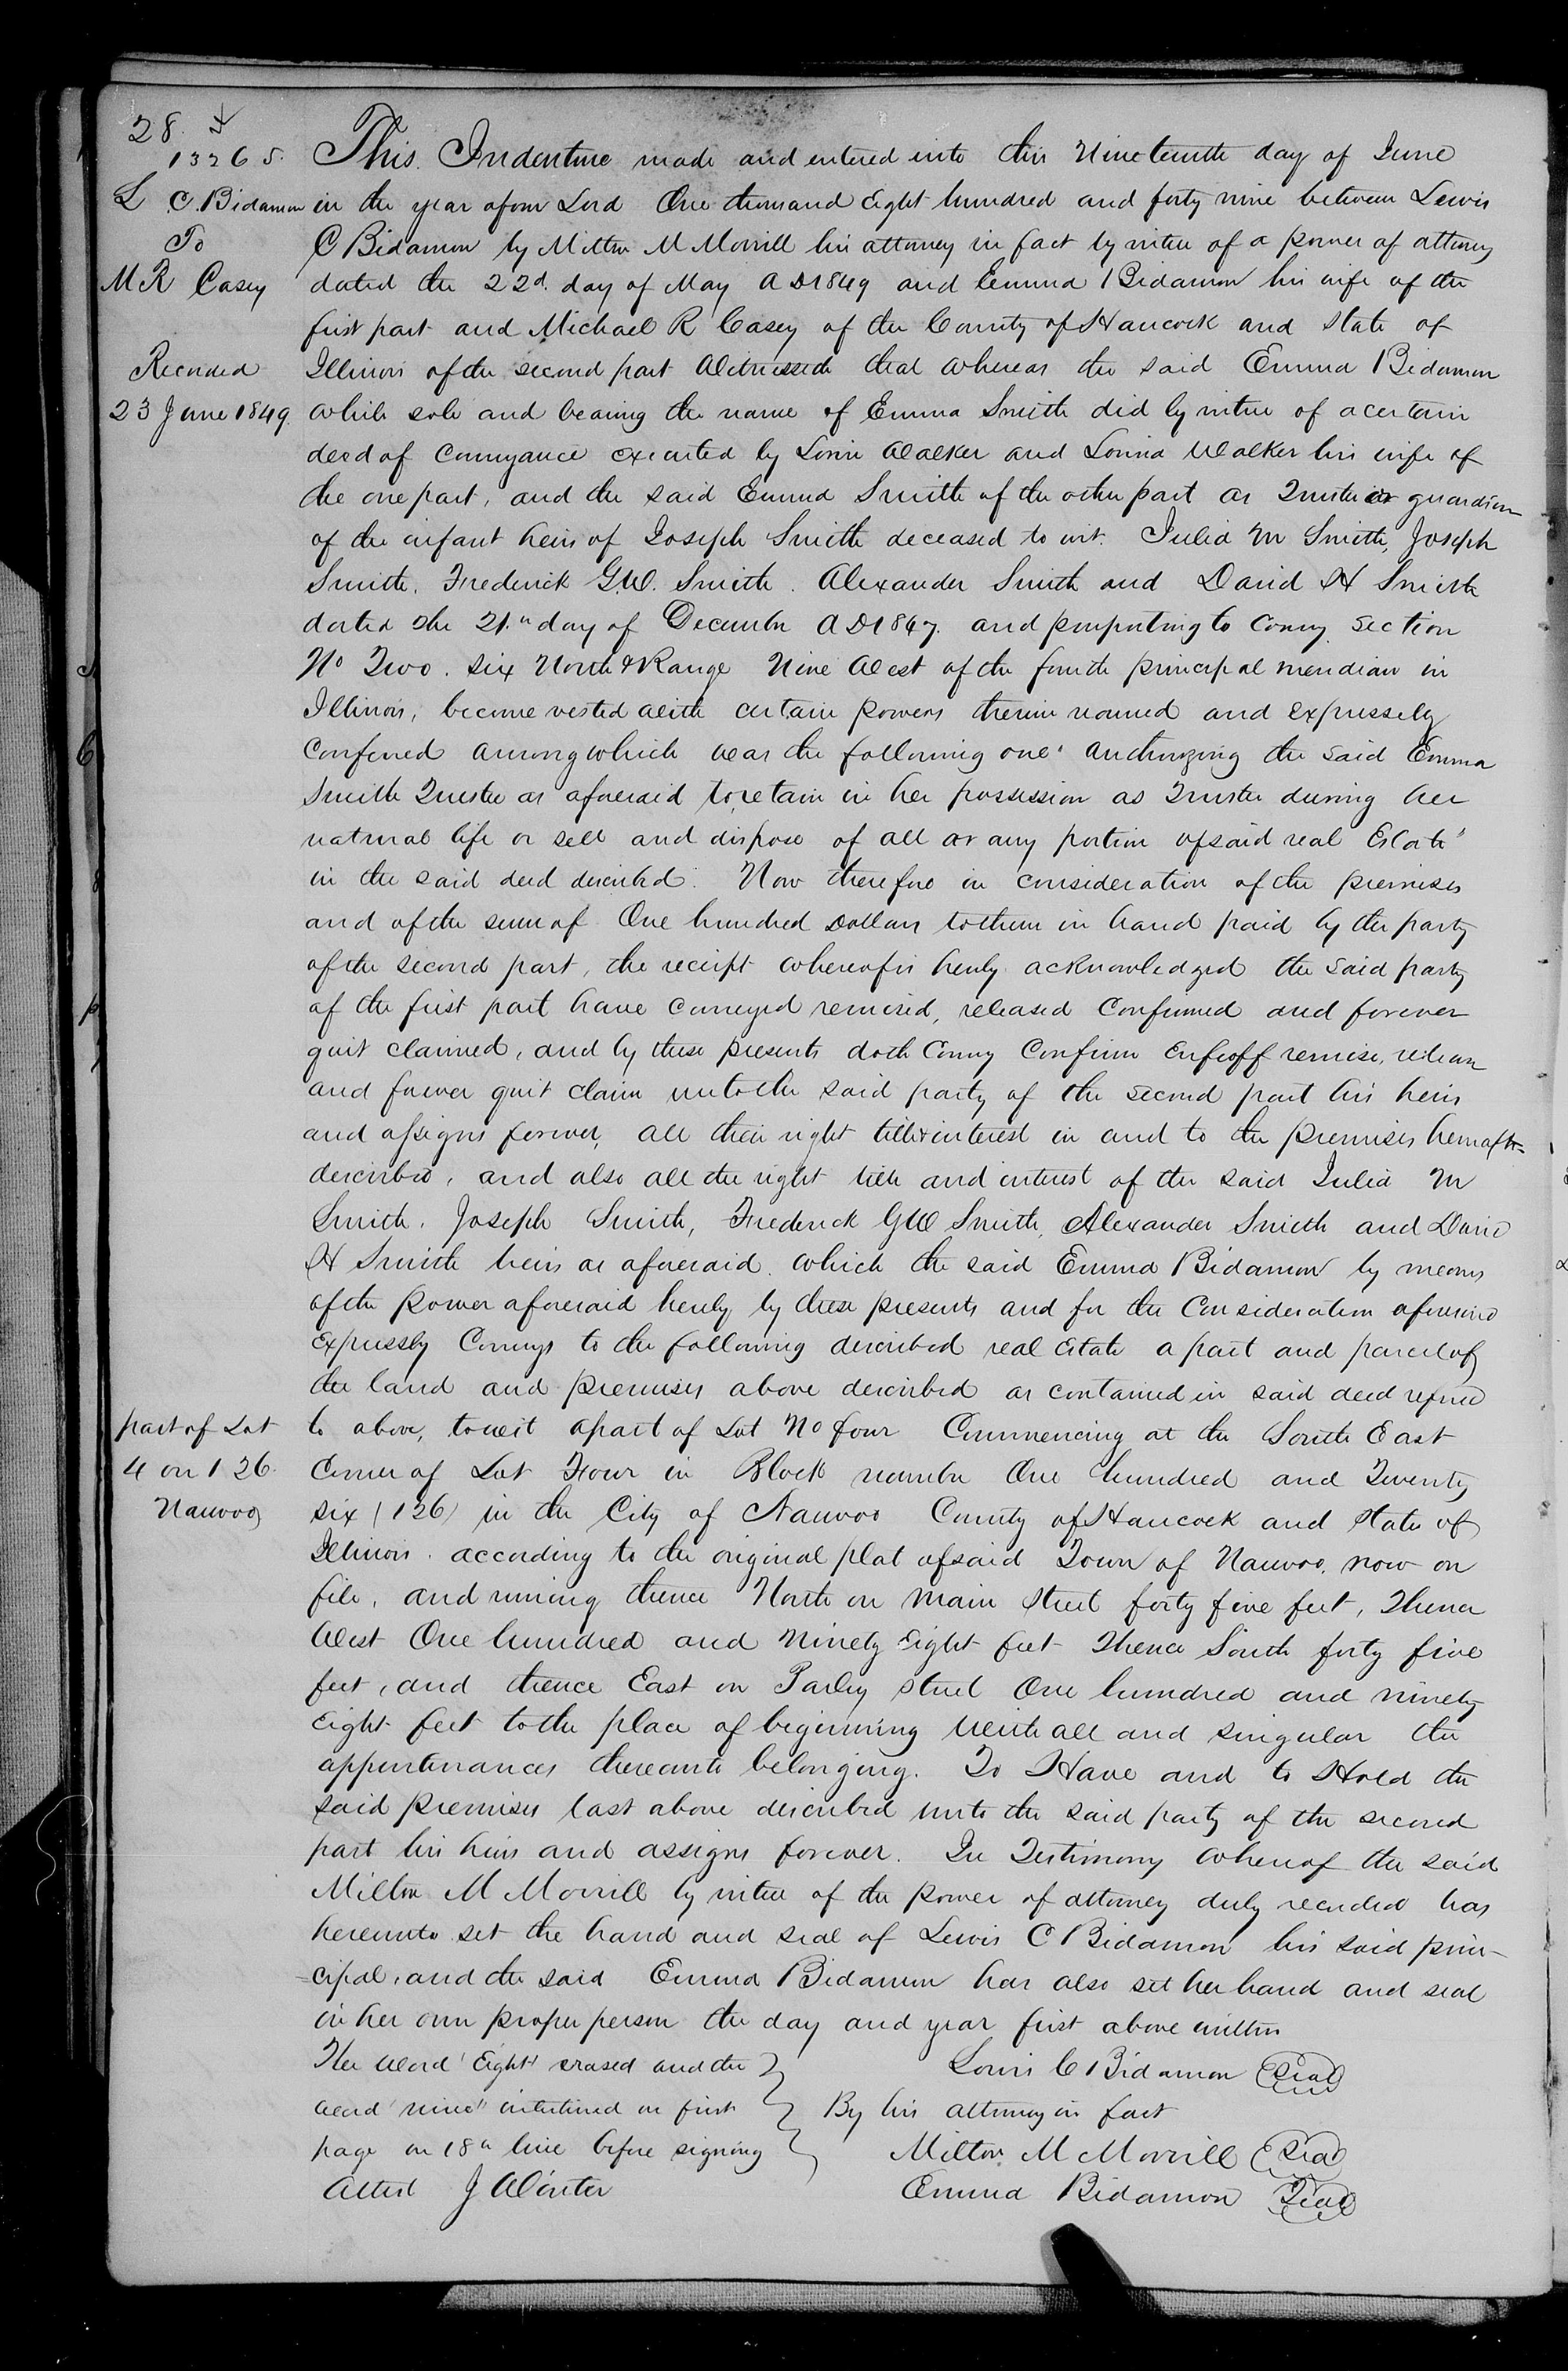 28.
13265.
L C. Bidamon
To
M R Casey
Recorded
23 June 1849.
This Indenture made and entered into this Nineteenth day of June
in the year of our Lord One thousand Eight hundred and forty nine between Lewis
C Bidamon by Milton M Morrill his attorney in fact by virtue of a power of attorney
dated the 22d. day of May A D 1849 and Emma Bidamon his wife of the
first part and Michael R Casey of the County of Hancock and State of
Illinois of the second part Witnesseth that whereas the said Emma Bidamon
while sole and bearing the name of Emma Smith did by virtue of a certain
deed of conveyance executed by Lorin Walker and Lovina Walker his wife of
the one part, and the said Emma Smith of the other part as Trustee or guardian
of the infant heirs of Joseph Smith deceased to wit. Julia M Smith, Joseph
Smith. Frederick G.W. Smith. Alexander Smith and David H Smith
dated the 21.st day of December A D 1847. and purporting to convey section
No Two. six North & Range Nine West of the fourth principal meridian in
Illinois, become vested with certain powers therein named and expressely
conferred among which was the following one' authorizing the said Emma
Smith Trustee as aforesaid to retain in her possession as Trustee during her
natural life or sell and dispose of all or any portion of said real Estate'
in the said deed described. Now therefore in consideration of the premises
and of the sum of One hundred Dollars to them in hand paid by the party
of the second part, the receipt whereof is hereby acknowledged the said party
of the first part have conveyed remised, released Confirmed and forever
quit claimed, and by these presents doth Convey Confirm Enfeoff remise, release
and forever quit claim unto the said party of the second part his heirs
and assigns forever, all their right title & interest in and to the premises hereafter
described, and also all the right title and interest of the said Julia M
Smith. Joseph Smith, Frederick G W Smith, Alexander Smith and David
H Smith heirs as aforesaid. which the said Emma Bidamon by means
of the power aforesaid hereby by these presents and for the Consideration aforesaid
expressly Conveys to the following described real Estate a part and parcel of
the land and premises above described as contained in said deed refered
part of Lot
4 on 126.
Nauvoo
to above, to wit a part of Lot No four Commencing at the South East
Corner of Lot Four in Block number One hundred and Twenty
six (126) in the City of Nauvoo County of Hancock and State of
Illinois. according to the original plat of said Town of Nauvoo. now on
file, and runing thence North on Main Street forty five feet, Thence
West One hundred and Ninety Eight feet Thence South forty five
feet, and thence East on Parley street One hundred and ninety
Eight feet to the place of beginning With all and singular the
appurtenances thereunto belonging. To Have and to Hold the
said premises last above described unto the said party of the second
part his heirs and assigns forever. In Testimony whereof the said
Milton M Morrill by virtue of the power of attorney duly recorded has
hereunto set the hand and seal of Lewis C Bidamon his said prin-
=cipal, and the said Emma Bidamon has also set her hand and seal
in her own proper person the day and year first above written
The Word 'Eight' erased and the
word 'nine" interlined on first
page on 18th line before signing
Attest J Winter
Lewis C Bidamon Seal
By his attorney in fact
Milton M Morrill Seal
Emma Bidamon Seal